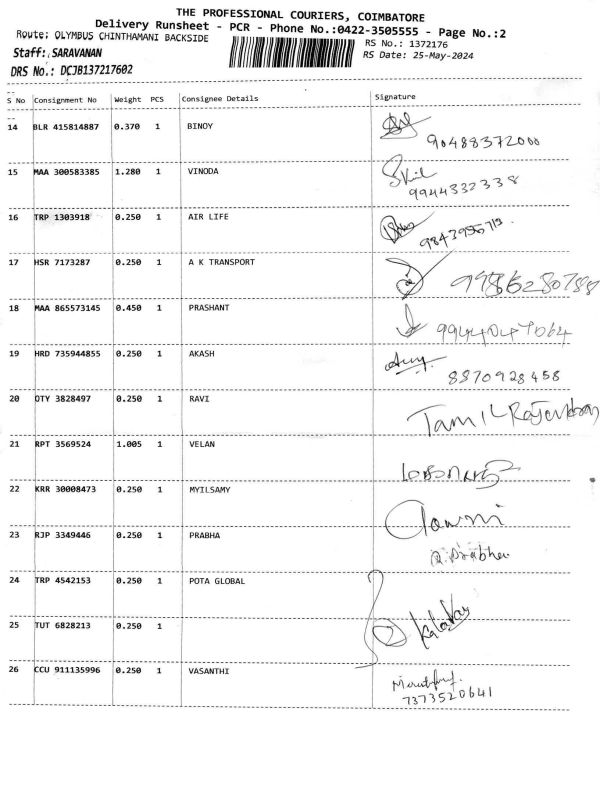 THE PROFESSIONAL COURIERS, COIMBATORE
Delivery Runsheet - PCR - Phone No.:0422-3505555 - Page No.:2
Route: OLYMBUS CHINTHAMANI BACKSIDE
RS No.: 1372176
Staff: SARAVANAN
RS Date: 25-May-2024
DRS No.: DCJB137217602
S No Consignment No Weight PCS Consignee Details Signature
14 BLR 415814887 0.370 1 BINOY
90488372000
15 MAA 300583385 1.280 1 VINODA
9944332338
16 TRP 1303918 0.250 1 AIR LIFE
17 HSR 7173287 0.250 1 A K TRANSPORT
18 MAA 865573145 0.450 1 PRASHANT
9944047064
19 HRD 735944855 0.250 1 AKASH
8870928458
20 OTY 3828497 0.250 1 RAVI
Tamil
21 RPT 3569524 1.005 1 VELAN
22 KRR 30008473 0.250 1 MYILSAMY
Gowri
23 RJP 3349446 0.250 1 PRABHA
24 TRP 4542153 0.250 1 POTA GLOBAL
25 TUT 6828213 0.250 1
26 CCU 911135996 0.250 1 VASANTHI
7373520641